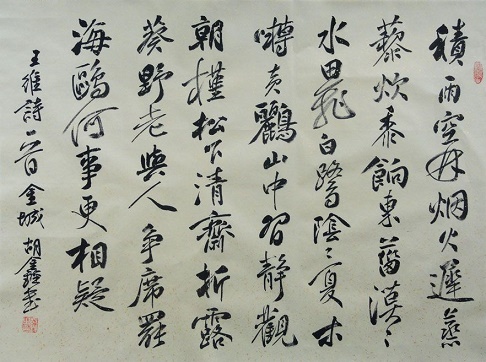 積雨空林烟火遲蒸
藜炊黍餉東菑漠〻
水田飛白鷺陰〻夏木
囀黄鸝山中習靜觀
朝槿松下清齋折露
葵野老與人爭席罷
海鷗何事更相疑
王維詩一首金城胡鑫書